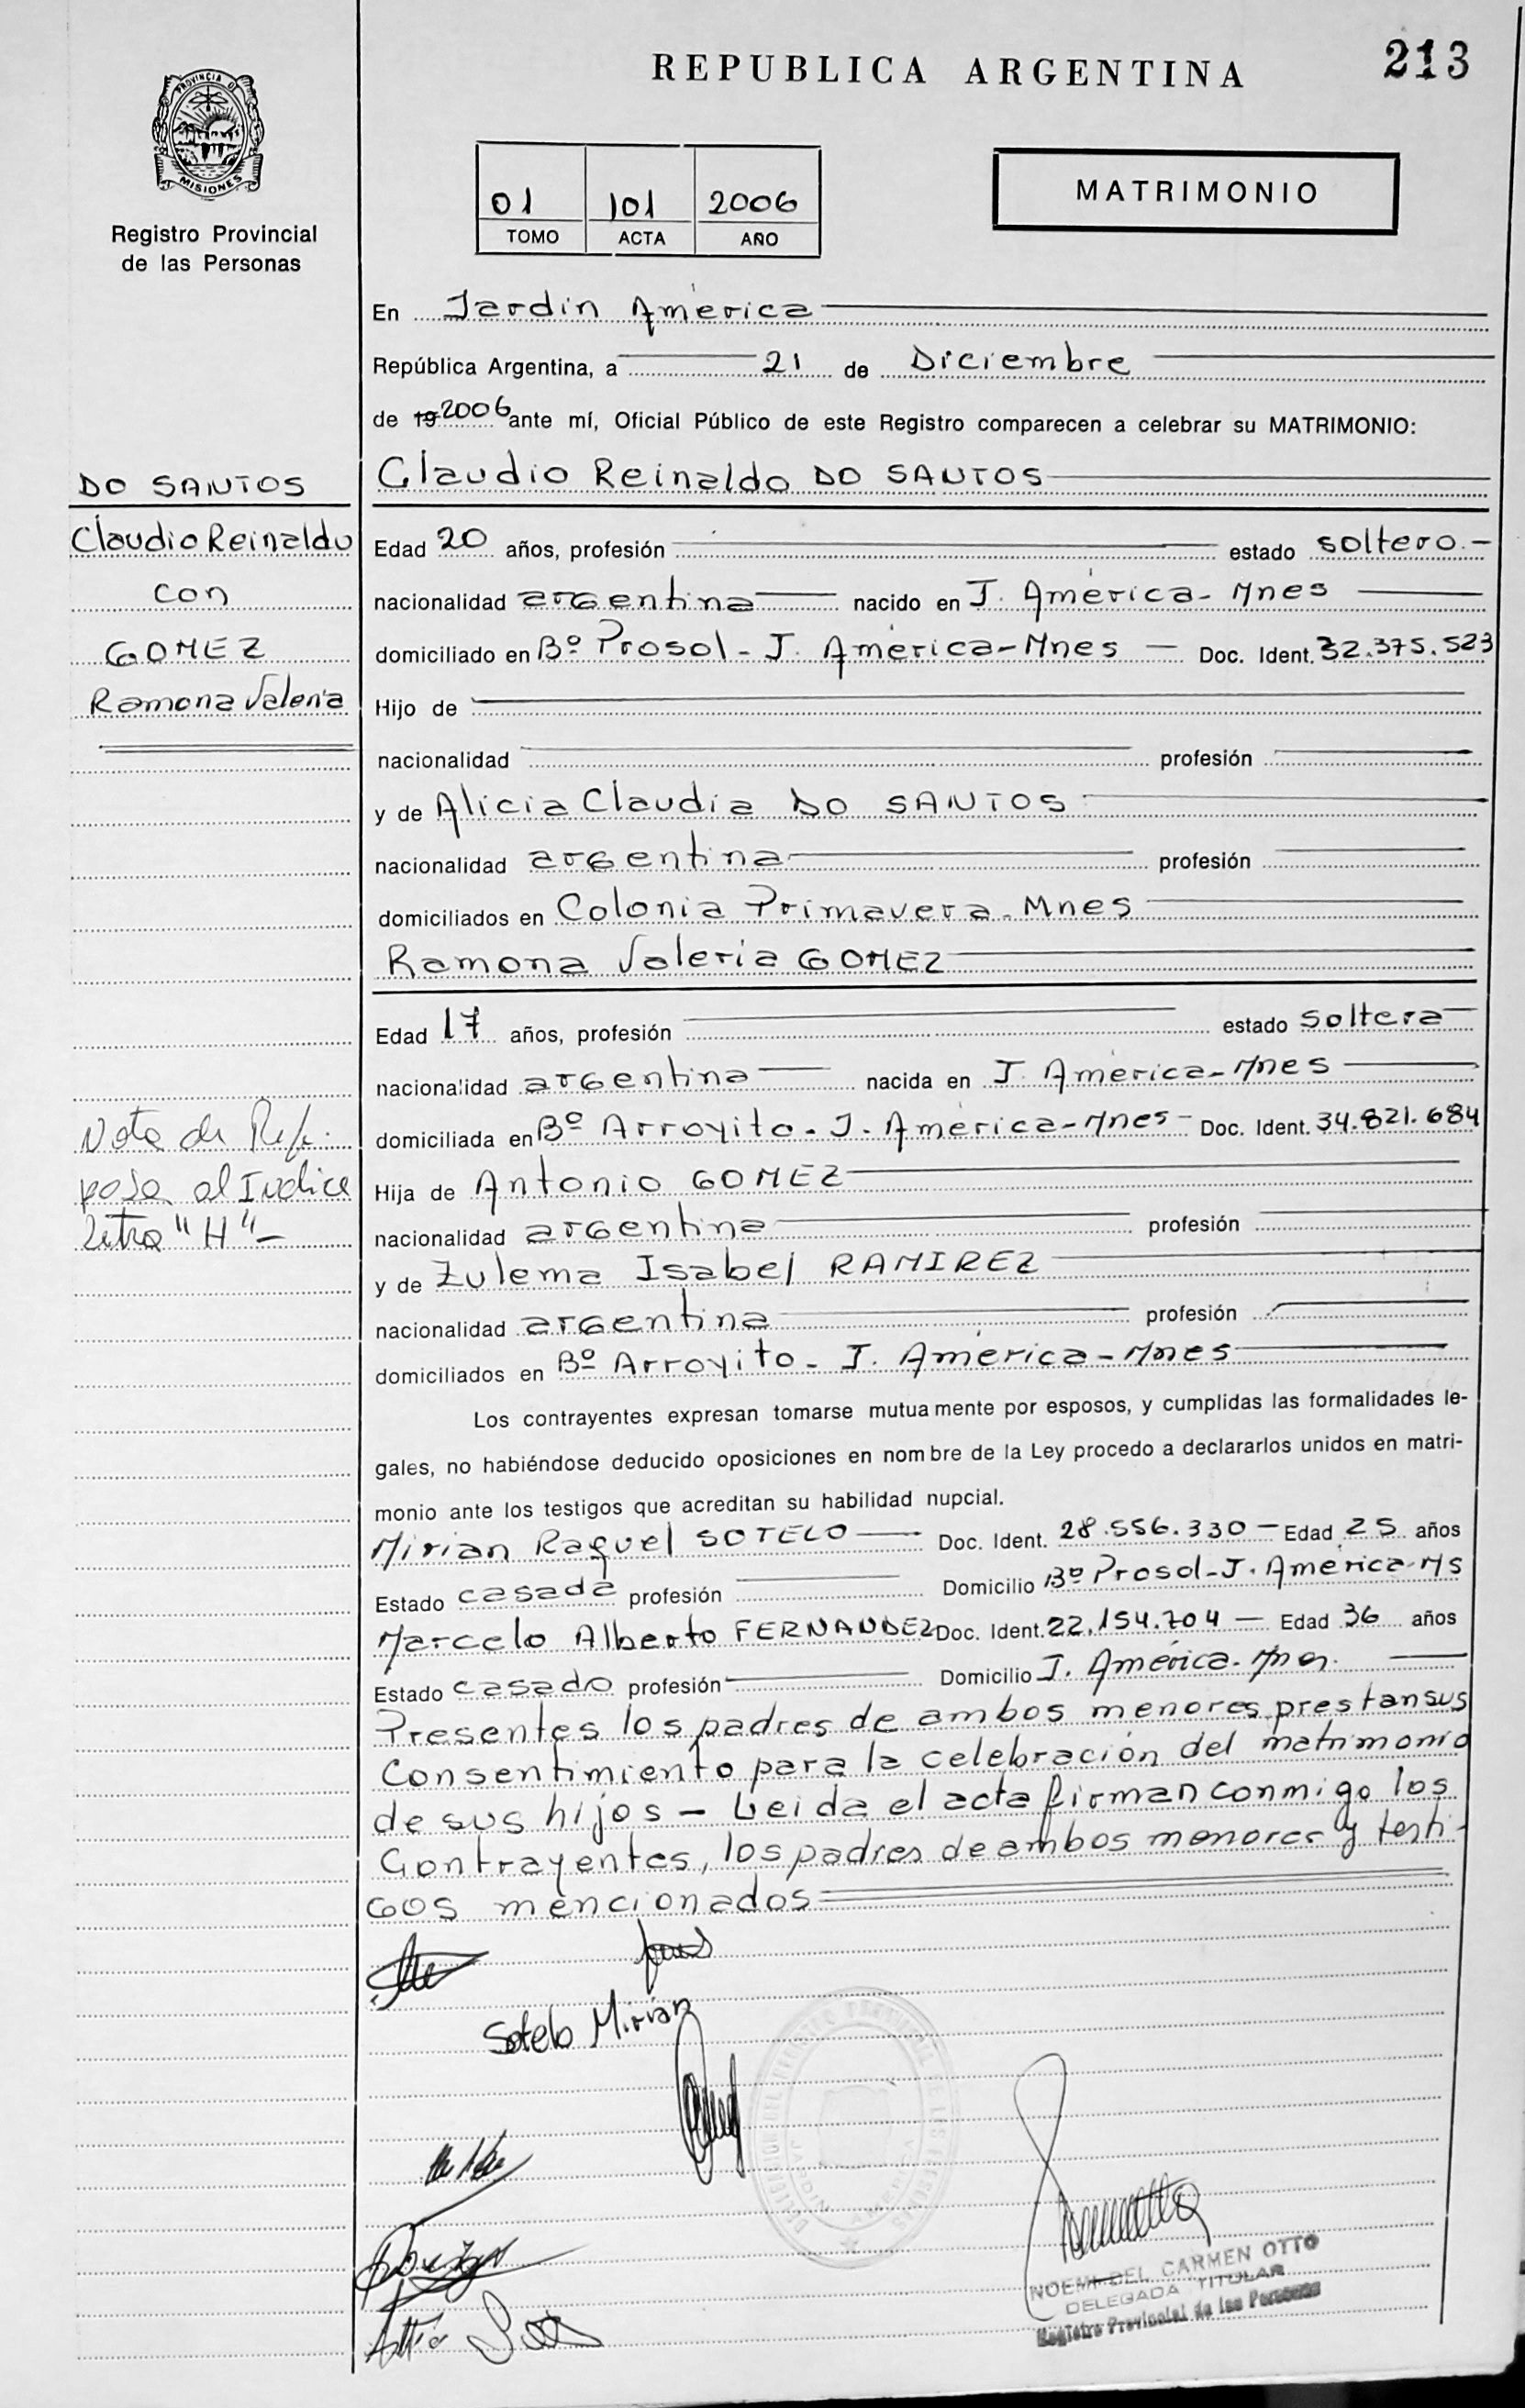 REPUBLICA ARGENTINA
213
PROVINCIA D
MISIONES
Registro Provincial
de las Personas
01 101 2006
TOMO ACTA AÑO
MATRIMONIO
En Jardin América
República Argentina, a 21 de Diciembre
de 19 2006 ante mí, Oficial Público de este Registro comparecen a celebrar su MATRIMONIO:
DO SANTOS
Claudio Reinaldo
con
GOMEZ
Ramona Valeria
Claudio Reinaldo DO SANTOS
Edad 20 años, profesión estado soltero.-
nacionalidad argentina nacido en J. América - Mnes
domiciliado en Bº Prosol - J. América - Mnes - Doc. Ident. 32.375.523
Hijo de
nacionalidad profesión
y de Alicia Claudia DO SANTOS
nacionalidad argentina profesión
domiciliados en Colonia Primavera - Mnes
Ramona Valeria GOMEZ
Edad 17 años, profesión estado soltera
nacionalidad argentina nacida en J. América - Mnes
domiciliada en Bº Arroyito - J. América - Mnes - Doc. Ident. 34.821.684
Hija de Antonio GOMEZ
nacionalidad argentina profesión
y de Zulema Isabel RAMIREZ
nacionalidad argentina profesión
domiciliados en Bº Arroyito - J. América - Mnes
Nota de Ref.
pasa al Indice
letra "H" -
Los contrayentes expresan tomarse mutuamente por esposos, y cumplidas las formalidades le-
gales, no habiéndose deducido oposiciones en nombre de la Ley procedo a declararlos unidos en matri-
monio ante los testigos que acreditan su habilidad nupcial.
Mirian Raquel SOTELO Doc. Ident. 28.556.330 - Edad 25 años
Estado casada profesión Domicilio Bº Prosol - J. América - Ms
Marcelo Alberto FERNANDEZ Doc. Ident. 22.154.704 - Edad 36 años
Estado casado profesión Domicilio J. América - Mnes.
Presentes los padres de ambos menores prestan sus
Consentimiento para la celebración del matrimonio
de sus hijos - Leida el acta firman conmigo los
Contrayentes, los padres de ambos menores y testi-
gos mencionados
Sotelo Mirian
DELEGACION DEL REGISTRO PROVINCIAL DE LAS PERSONAS
JARDIN AMERICA
NOEMI DEL CARMEN OTTO
DELEGADA TITULAR
Registro Provincial de las Personas